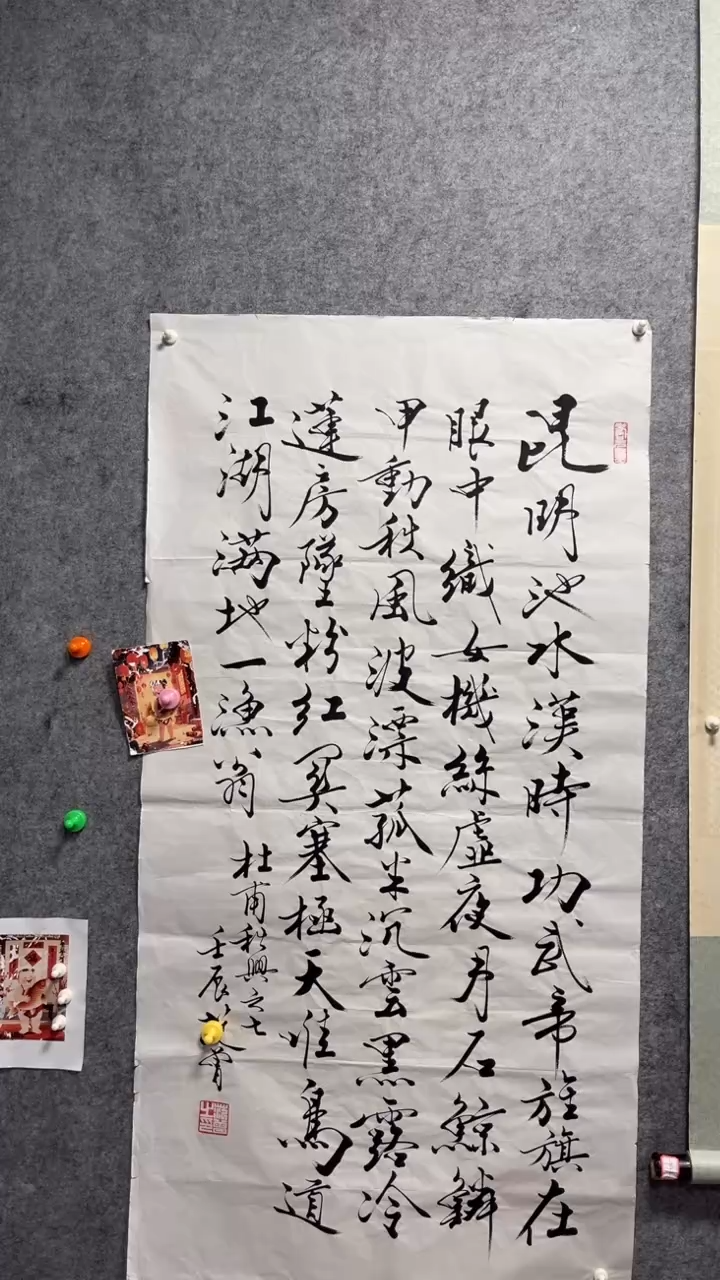 昆明池水漢時功武帝旌旗在
眼中織女機絲虛夜月石鯨鱗
甲動秋風波漂菰米沉雲黑露冷
蓮房墜粉紅關塞極天唯鳥道
江湖滿地一漁翁
杜甫秋興之七
壬辰